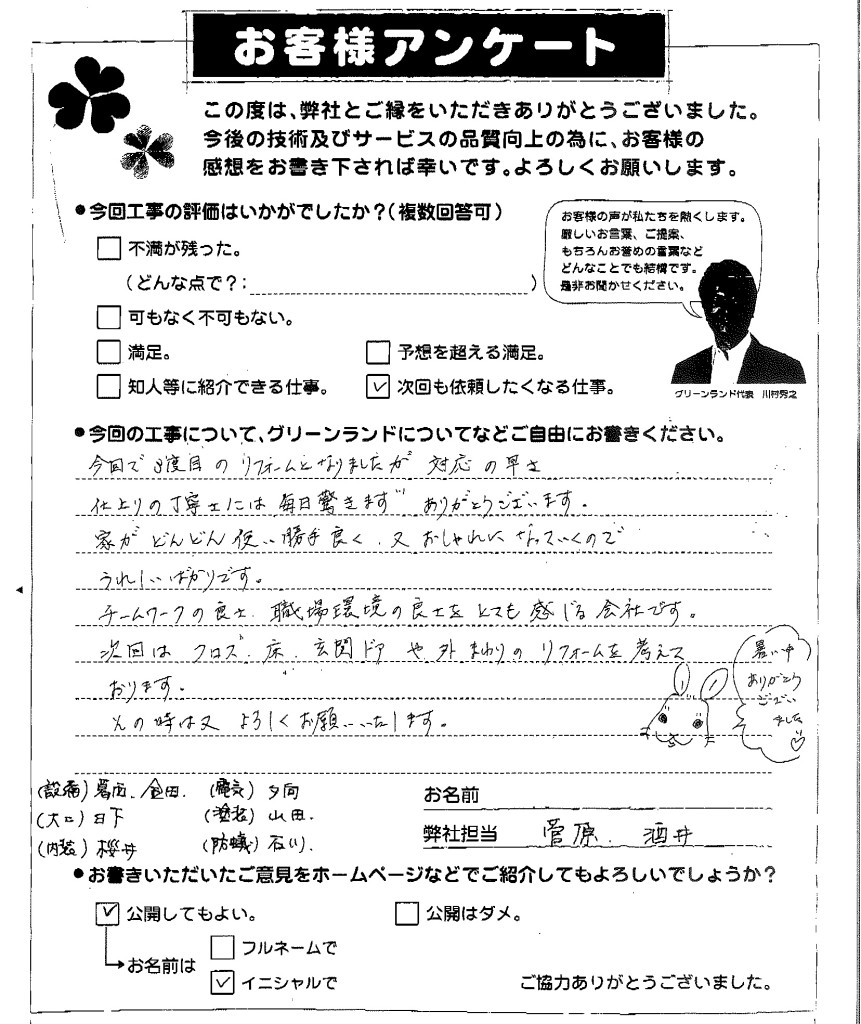 お客様アンケート
この度は、弊社とご縁をいただきありがとうございました。
今後の技術及びサービスの品質向上の為に、お客様の
感想をお書き下されば幸いです。よろしくお願いします。
●今回工事の評価はいかがでしたか?(複数回答可)
不満が残った。
(どんな点で?:)
可もなく不可もない。
満足。
予想を超える満足。
知人等に紹介できる仕事。
次回も依頼したくなる仕事。
お客様の声が私たちを熱くします。
厳しいお言葉、ご提案、
もちろんお誉めの言葉など
どんなことでも結構です。
是非お聞かせください。
グリーンランド代表 川村秀之
●今回の工事について、グリーンランドについてなどご自由にお書きください。
今回で3度目のリフォームとなりましたが 対応の早さ
仕上りの丁寧さには毎日驚きます ありがとうございます。
家がどんどん使い勝手良く、又おしゃれになっていくので
うれしいばかりです。
チームワークの良さ、職場環境の良さをとても感じる会社です。
次回は クロズ、床、玄関ドアや外まわりのリフォームを考えて
おります。
その時は又よろしくお願いいたします。
暑い中
ありがとう
ござい
ました
(設備) 葛西、金田、 (電気) 夕向
(大工) 日下 (塗装) 山田、
(内装) 桜井 (防蟻) 石川、
お名前
弊社担当 菅原、酒井
●お書きいただいたご意見をホームページなどでご紹介してもよろしいでしょうか?
公開してもよい。
公開はダメ。
お名前は
フルネームで
イニシャルで
ご協力ありがとうございました。